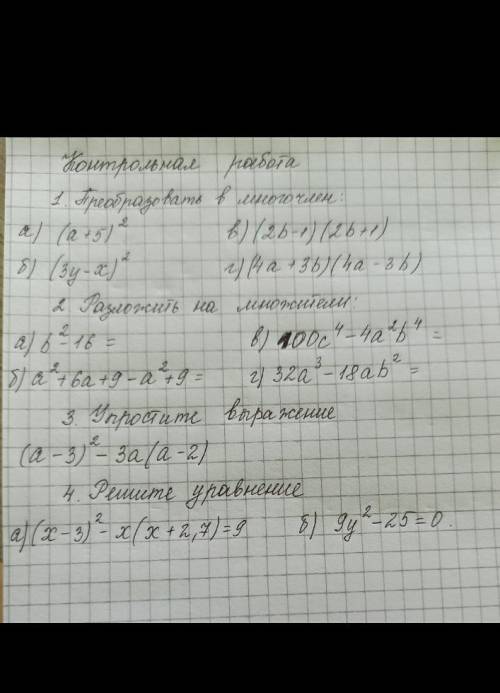 Контрольная работа
1. Преобразовать в многочлен:
а) (a+5)² в) (2b-1)(2b+1)
б) (3y-x)² г) (4a+3b)(4a-3b)
2 Разложить на множители:
а) b²-16 = в) 100c⁴-4a²b⁴ =
б) a²+6a+9-a²+9= г) 32a³-18ab² =
3. Упростите выражение
(a-3)²-3a(a-2)
4. Решите уравнение
а) (x-3)²-x(x+2,7)=9 б) 9y²-25=0.